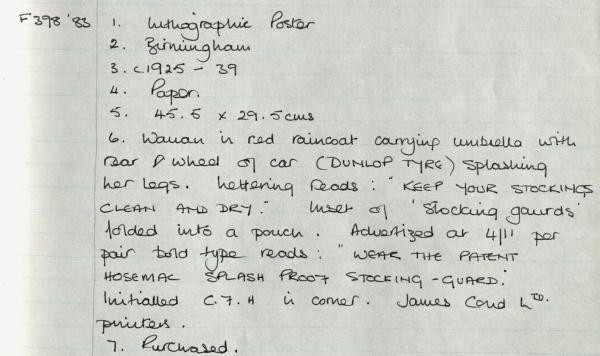 F398 '83 1. Lithographic Poster
2. Birmingham
3. c1925 - 39
4. Paper.
5. 45.5 x 29.5cms
6. Woman in red raincoat carrying umbrella with
rear wheel of car (DUNLOP TYRE) splashing
her legs. Lettering reads: "KEEP YOUR STOCKINGS
CLEAN AND DRY." Inset of 'stocking gaurds'
folded into a pouch. Advertized at 4/11 per
pair bold type reads: "WEAR THE PATENT
HOSEMAC SPLASH PROOF STOCKING-GUARD."
Initialled C.F.H in corner. James Cond LTD.
printers.
7. Purchased.